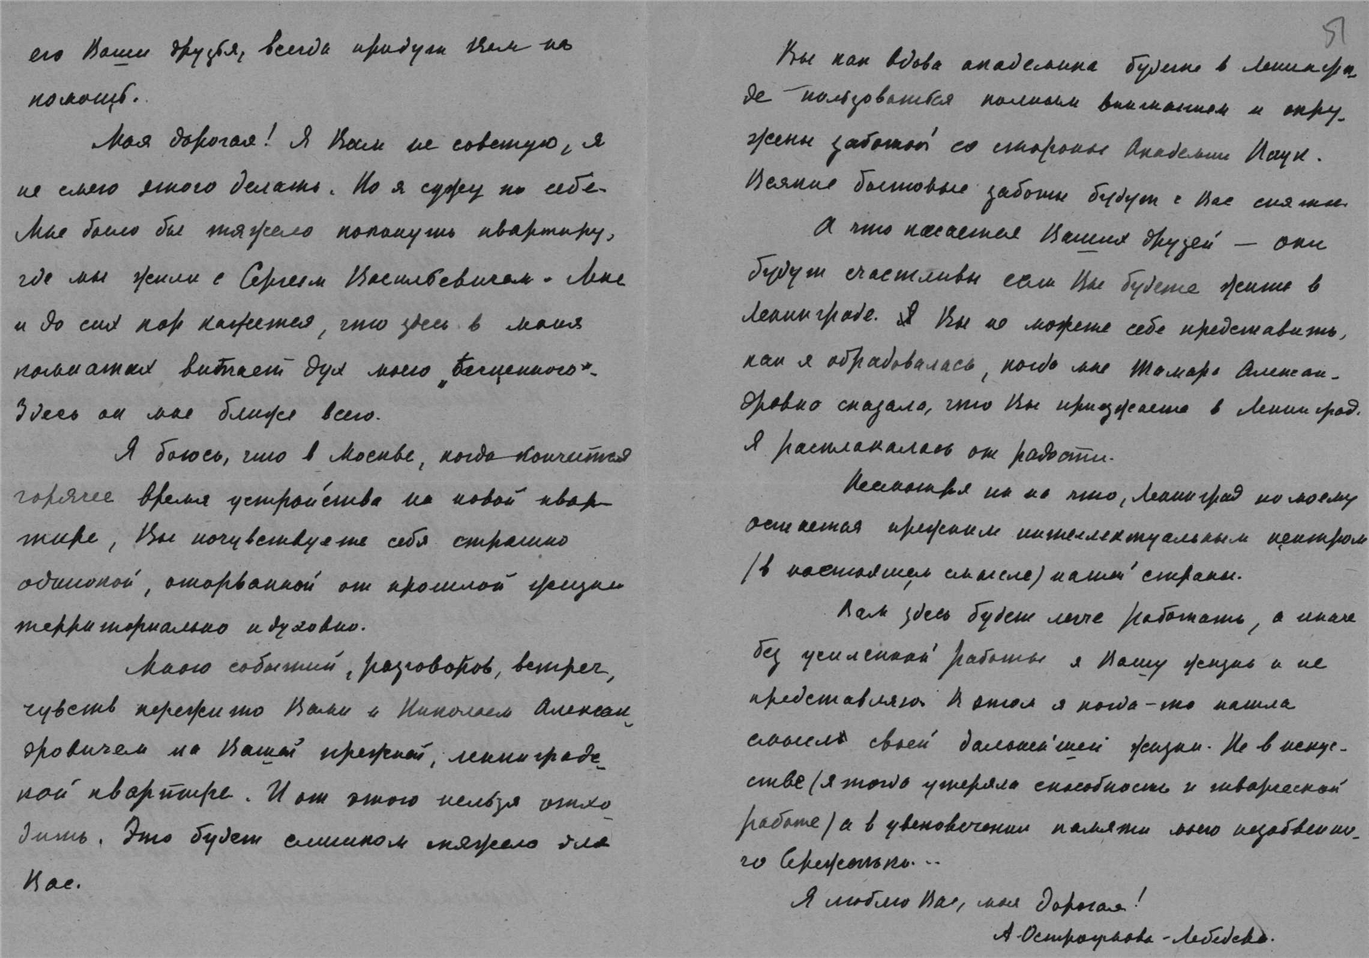 его Ваши друзья, всегда придут Вам на
помощь.
Моя дорогая! Я Вам не советую, я
не смею этого делать. Но я сужу по себе.
Мне было бы тяжело покинуть квартиру,
где мы жили с Сергеем Васильевичем. Мне
и до сих пор кажется, что здесь в моих
комнатах витает дух моего „бесценного“.
Здесь он мне ближе всего.
Я боюсь, что в Москве, когда кончится
горячее время устройства на новой квар-
тире, Вы почувствуете себя страшно
одинокой, оторванной от прошлой жизни
территориально и духовно.
Много событий, разговоров, встреч,
чувств пережито Вами и Николаем Алексан-
дровичем на Вашей прежней, ленинградс-
кой квартире. И от этого нельзя отхо
дить. Это будет слишком тяжело для
Вас.
51
Вы как вдова академика будете в Ленингра-
де пользоваться полным вниманием и окру-
жены заботой со стороны Академии Наук.
Всякие бытовые заботы будут с Вас сняты
А что касается Ваших друзей — они
будут счастливы если Вы будете жить в
Ленинграде. Вы не можете себе представить,
как я обрадовалась, когда мне Тамара Алексан-
дровна сказала, что Вы приезжаете в Ленинград.
Я расплакалась от радости.
Несмотря ни на что, Ленинград по моему
остается прежним интеллектуальным центром
(в настоящем смысле) нашей страны.
Вам здесь будет легче работать, а иначе
без усиленной работы я Вашу жизнь и не
представляю. В этом я когда-то нашла
смысл своей дальнейшей жизни. Не в искус-
стве (я тогда утеряла способность к творческой
работе) а в увековечении памяти моего незабвенно-
го Сереженьки...
Я люблю Вас, моя дорогая!
А. Остроумова-Лебедева.